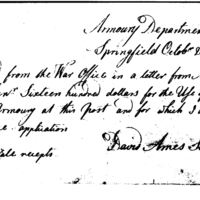 Armoury Departmen
Springfield Octobr 2
from the War Office in a letter from
Sixteen hundred dollars for the Use of
Armoury at this Port and for which I a
application
David Ames S
recepts